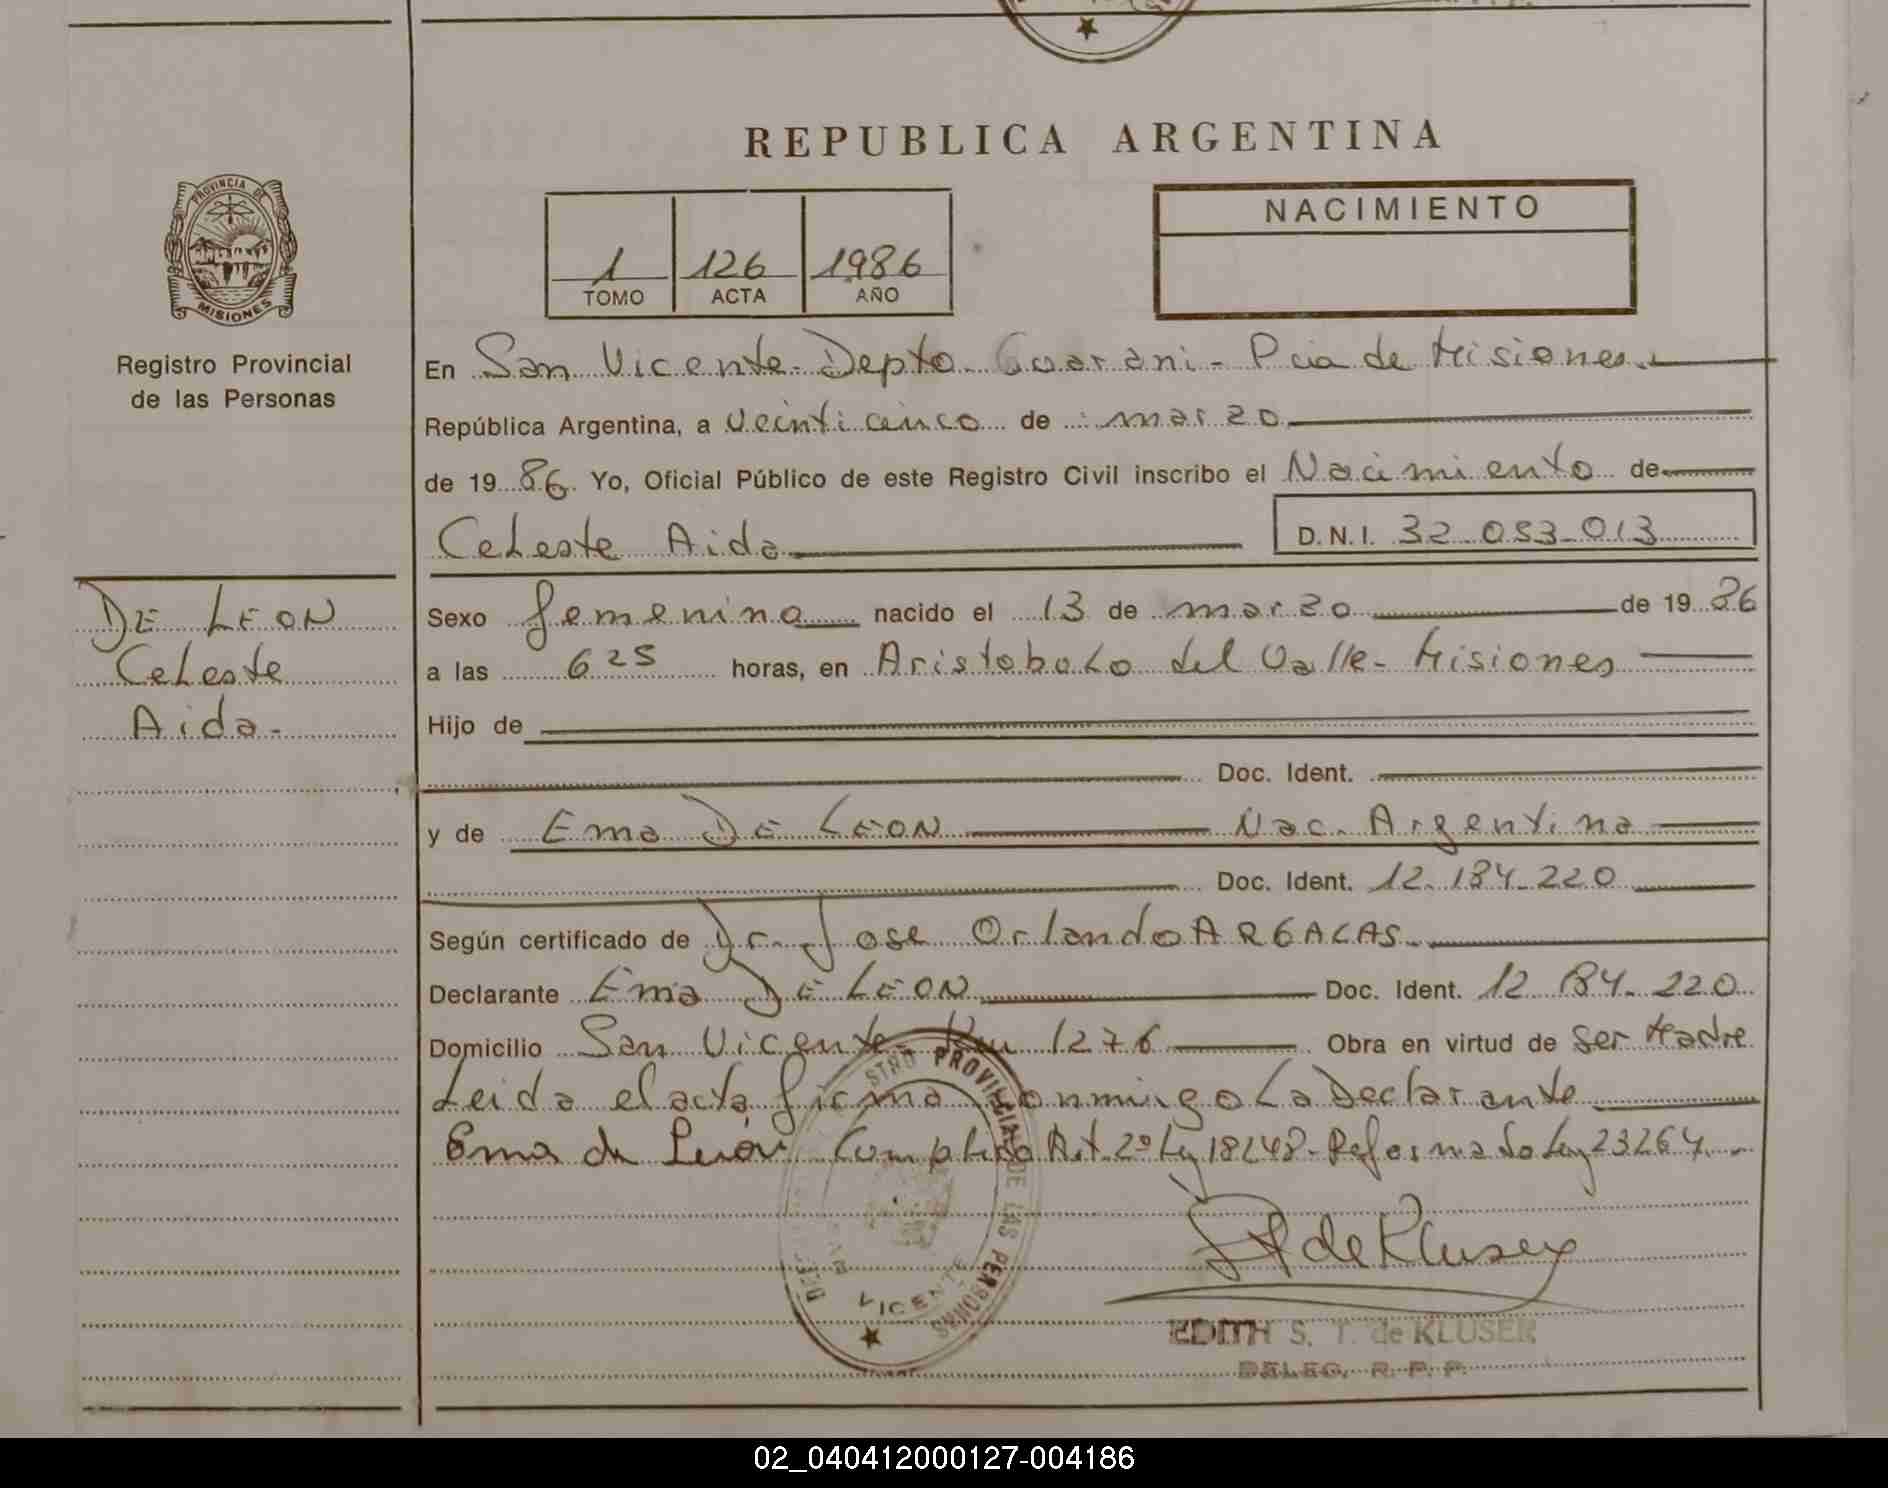 REPUBLICA ARGENTINA
PROVINCIA DE
MISIONES
Registro Provincial
de las Personas
1 126 1986
TOMO ACTA AÑO
NACIMIENTO
En San Vicente - Depto. Guarani - Pcia de Misiones.
República Argentina, a veinticinco de marzo
de 19 86. Yo, Oficial Público de este Registro Civil inscribo el Nacimiento de
Celeste Aida D.N.I. 32.053.013
DE LEON
Celeste
Aida-
Sexo femenino nacido el 13 de marzo de 19 86
a las 6 25 horas, en Aristobolo del Valle - Misiones
Hijo de
Doc. Ident.
y de Ema DE LEON Nac. Argentina
Doc. Ident. 12.184.220
Según certificado de Dr. Jose Orlando ARGACAS.
Declarante Ema DE LEON Doc. Ident. 12 184. 220
Domicilio San Vicente - Km 1276 Obra en virtud de Ser Madre
Leida el acta firma conmingo La Declarante
Ema de León Complido Art. 2º Ley 18248 - Reformado Ley 23264.
STRO PROVINCIAL DE LAS PERSONAS
VICENTE
de Kluser
EDITH S. T. de KLUSER
DELEG. R. P. P.
02_040412000127-004186